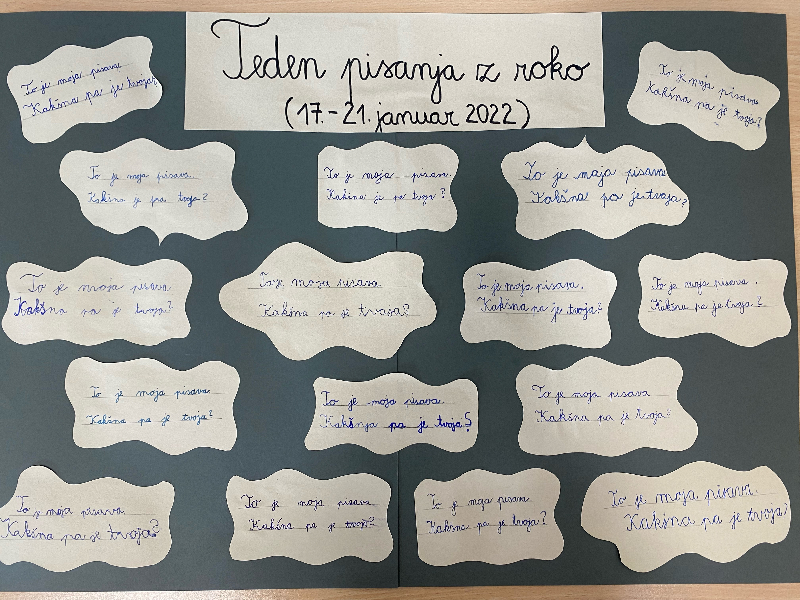 Teden pisanja z roko
(17.-21. januar 2022)
To je moja pisava.
Kakšna pa je tvoja?
To je moja pisava.
Kakšna pa je tvoja?
To je moja pisava.
Kakšna je pa tvoja?
To je moja pisava.
Kakšna je pa tvoja?
To je moja pisava.
Kakšna pa je tvoja?
To je moja pisava
Kakšna pa je tvoja?
To je moja pisava.
Kakšna pa je tvoja?
To je moja pisava.
Kakšna pa je tvoja?
To je moja pisava.
Kakšna pa je tvoja?
To je moja pisava.
Kakšna pa je tvoja?
To je moja pisava.
Kakšnja pa je tvoja?
To je moja pisava
Kakšna pa je tvoja?
To je moja pisava.
Kakšna pa je tvoja?
To je moja pisava.
Kakšna pa je tvoja?
To je moja pisava.
Kakšna pa je tvoja?
To je moja pisava.
Kakšna pa je tvoja?